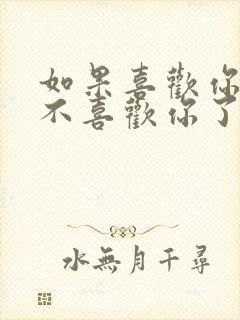 如果喜歡你
不喜歡你了
水無月千尋